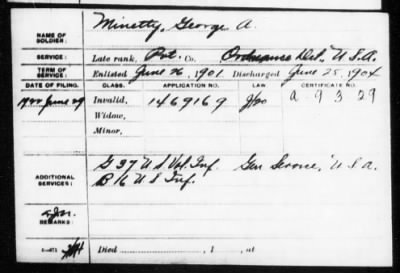 Minetty, George A.
NAME OF SOLDIER:
SERVICE: Late rank, Pvt. Co. Ordnance Det. U.S.A.
TERM OF SERVICE: Enlisted June 26, 1901 Discharged June 25, 1904
DATE OF FILING. CLASS. APPLICATION NO. LAW CERTIFICATE NO.
June 29 Invalid, 1469169 A 9 3 3 29
Widow,
Minor,
ADDITIONAL SERVICES: G 37 U S Vol. Inf. Gen Service, U.S.A.
B 16 U S Inf.
REMARKS:
Died , 1 , at